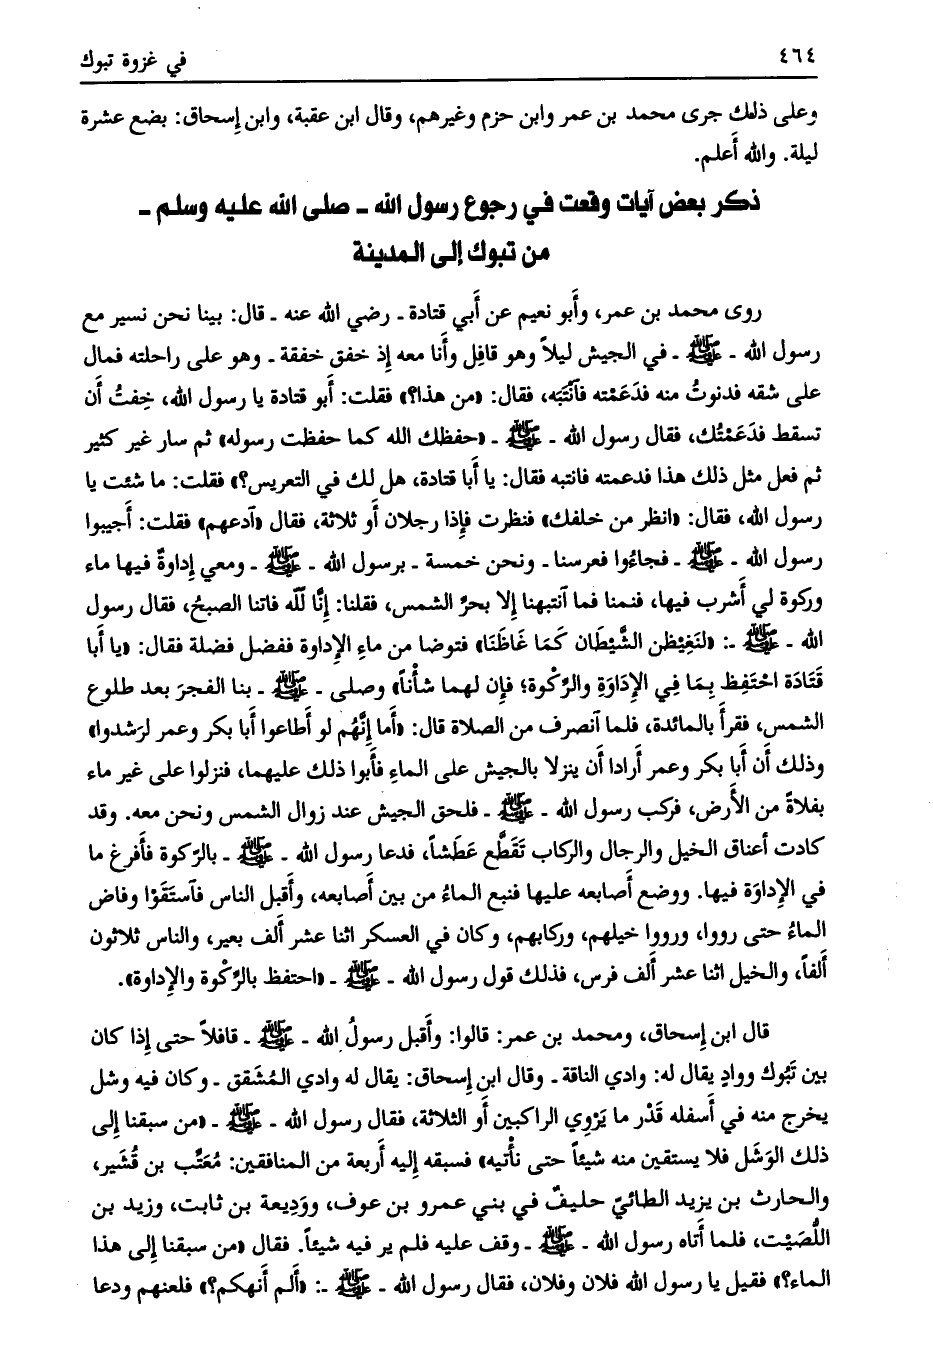 ٤٦٤
في غزوة تبوك
وعلى ذلك جرى محمد بن عمر وابن حزم وغيرهم، وقال ابن عقبة، وابن إسحاق: بضع عشرة
ليلة. والله أَعلم.
ذكر بعض آيات وقعت في رجوع رسول الله ـ صلى الله عليه وسلم ـ
من تبوك إلى المدينة
روى محمد بن عمر، وأَبو نعيم عن أَبي قتادة ـ رضي الله عنه ـ قال: بينا نحن نسير مع
رسول الله ـ ﷺ ـ في الجيش ليلاً وهو قافِل وأَنا معه إِذ خفق خفقة ـ وهو على راحلته فمال
على شقه فدنوتُ منه فدَعَمْته فآنْتَبَه، فقال: «من هذا؟» فقلت: أَبو قتادة يا رسول الله، خِفتُ أَن
تسقط فدَعَمْتُك، فقال رسول الله ـ ﷺ ـ «حفظك الله كما حفظت رسوله» ثم سار غير كثير
ثم فعل مثل ذلك هذا فدعمته فانتبه فقال: يا أَبا قتادة، هل لك في التعريس؟» فقلت: ما شئت يا
رسول الله، فقال: «انظر من خلفك» فنظرت فإِذا رجلان أَو ثلاثة، فقال «آدعهم» فقلت: أَجيبوا
رسول الله ـ ﷺ ـ فجاءُوا فعرسنا ـ ونحن خمسة ـ برسول الله ـ ﷺ ـ ومعي إِداوةٌ فيها ماء
وركوة لي أَشرب فيها، فنمنا فما آنتبهنا إِلا بحرِّ الشمس، فقلنا: إِنَّا لله فاتنا الصبحُ، فقال رسول
الله ـ ﷺ ـ: «لنَغِيْظن الشَّيْطَان كَمَا غَاظَنَا» فتوضا من ماءِ الإِداوة ففضل فضلة فقال: «يا أَبا
قَتَادَة احْتَفِظ بِمَا فِي الإِدَاوَةِ والرِّكْوة؛ فإِن لهما شأْناً» وصلى ـ ﷺ ـ بنا الفجرَ بعد طلوع
الشمس، فقرأَ بالمائدة، فلما آنصرف من الصلاة قال: «أَما إِنَّهُم لو أَطاعوا أَبا بكر وعمر لرَشدوا»
وذلك أَن أَبا بكر وعمر أَرادا أَن ينزلا بالجيش على الماءِ فأَبوا ذلك عليهما، فنزلوا على غير ماء
بفلاةً من الأَرض، فركب رسول الله ـ ﷺ ـ فلحق الجيش عند زوال الشمس ونحن معه. وقد
كادت أعناق الخيل والرجال والركاب تَقَطَّع عَطَشاً، فدعا رسول الله ـ ﷺ ـ بالرّكوة فأَفرغ ما
في الإِداوَة فيها. ووضع أَصابعه عليها فنبع الماءُ من بين أَصابعه، وأَقبل الناس فآستَقَوْا وفاض
الماءُ حتى رووا، ورووا خيلهم، وركابهم، وكان في العسكر اثنا عشر أَلف بعير، والناس ثلاثون
أَلفاً، والخيل اثنا عشر أَلف فرس، فذلك قول رسول الله ـ ﷺ ـ «احتفظ بالرَّكْوة والإِداوة».
قال ابن إِسحاق، ومحمد بن عمر: قالوا: وأَقبل رسولُ الله ـ ﷺ ـ قافلاً حتى إِذا كان
بين تَبُوك ووادٍ يقال له: وادي الناقة ـ وقال ابن إِسحاق: يقال له وادي المُشَقق ـ وكان فيه وشل
يخرج منه في أَسفله قَدْر ما يَرْوِي الراكبين أَو الثلاثة، فقال رسول الله ـ ﷺ ـ «من سبقنا إِلى
ذلك الوَشَل فلا يستقين منه شيئاً حتى نأْتيه» فسبقه إِليه أَربعة من المنافقين: مُعَتِّب بن قُشَير،
والحارث بن يزيد الطائيّ حليفٌ في بني عمرو بن عوف، ووَدِيعة بن ثابت، وزيد بن
اللُّصَيْت، فلما أَتاه رسول الله ـ ﷺ ـ وقف عليه فلم ير فيه شيئاً. فقال «من سبقنا إِلى هذا
الماء؟» فقيل يا رسول الله فلان وفلان، فقال رسول الله ـ ﷺ ـ: «أَلم أَنهكم؟» فلعنهم ودعا